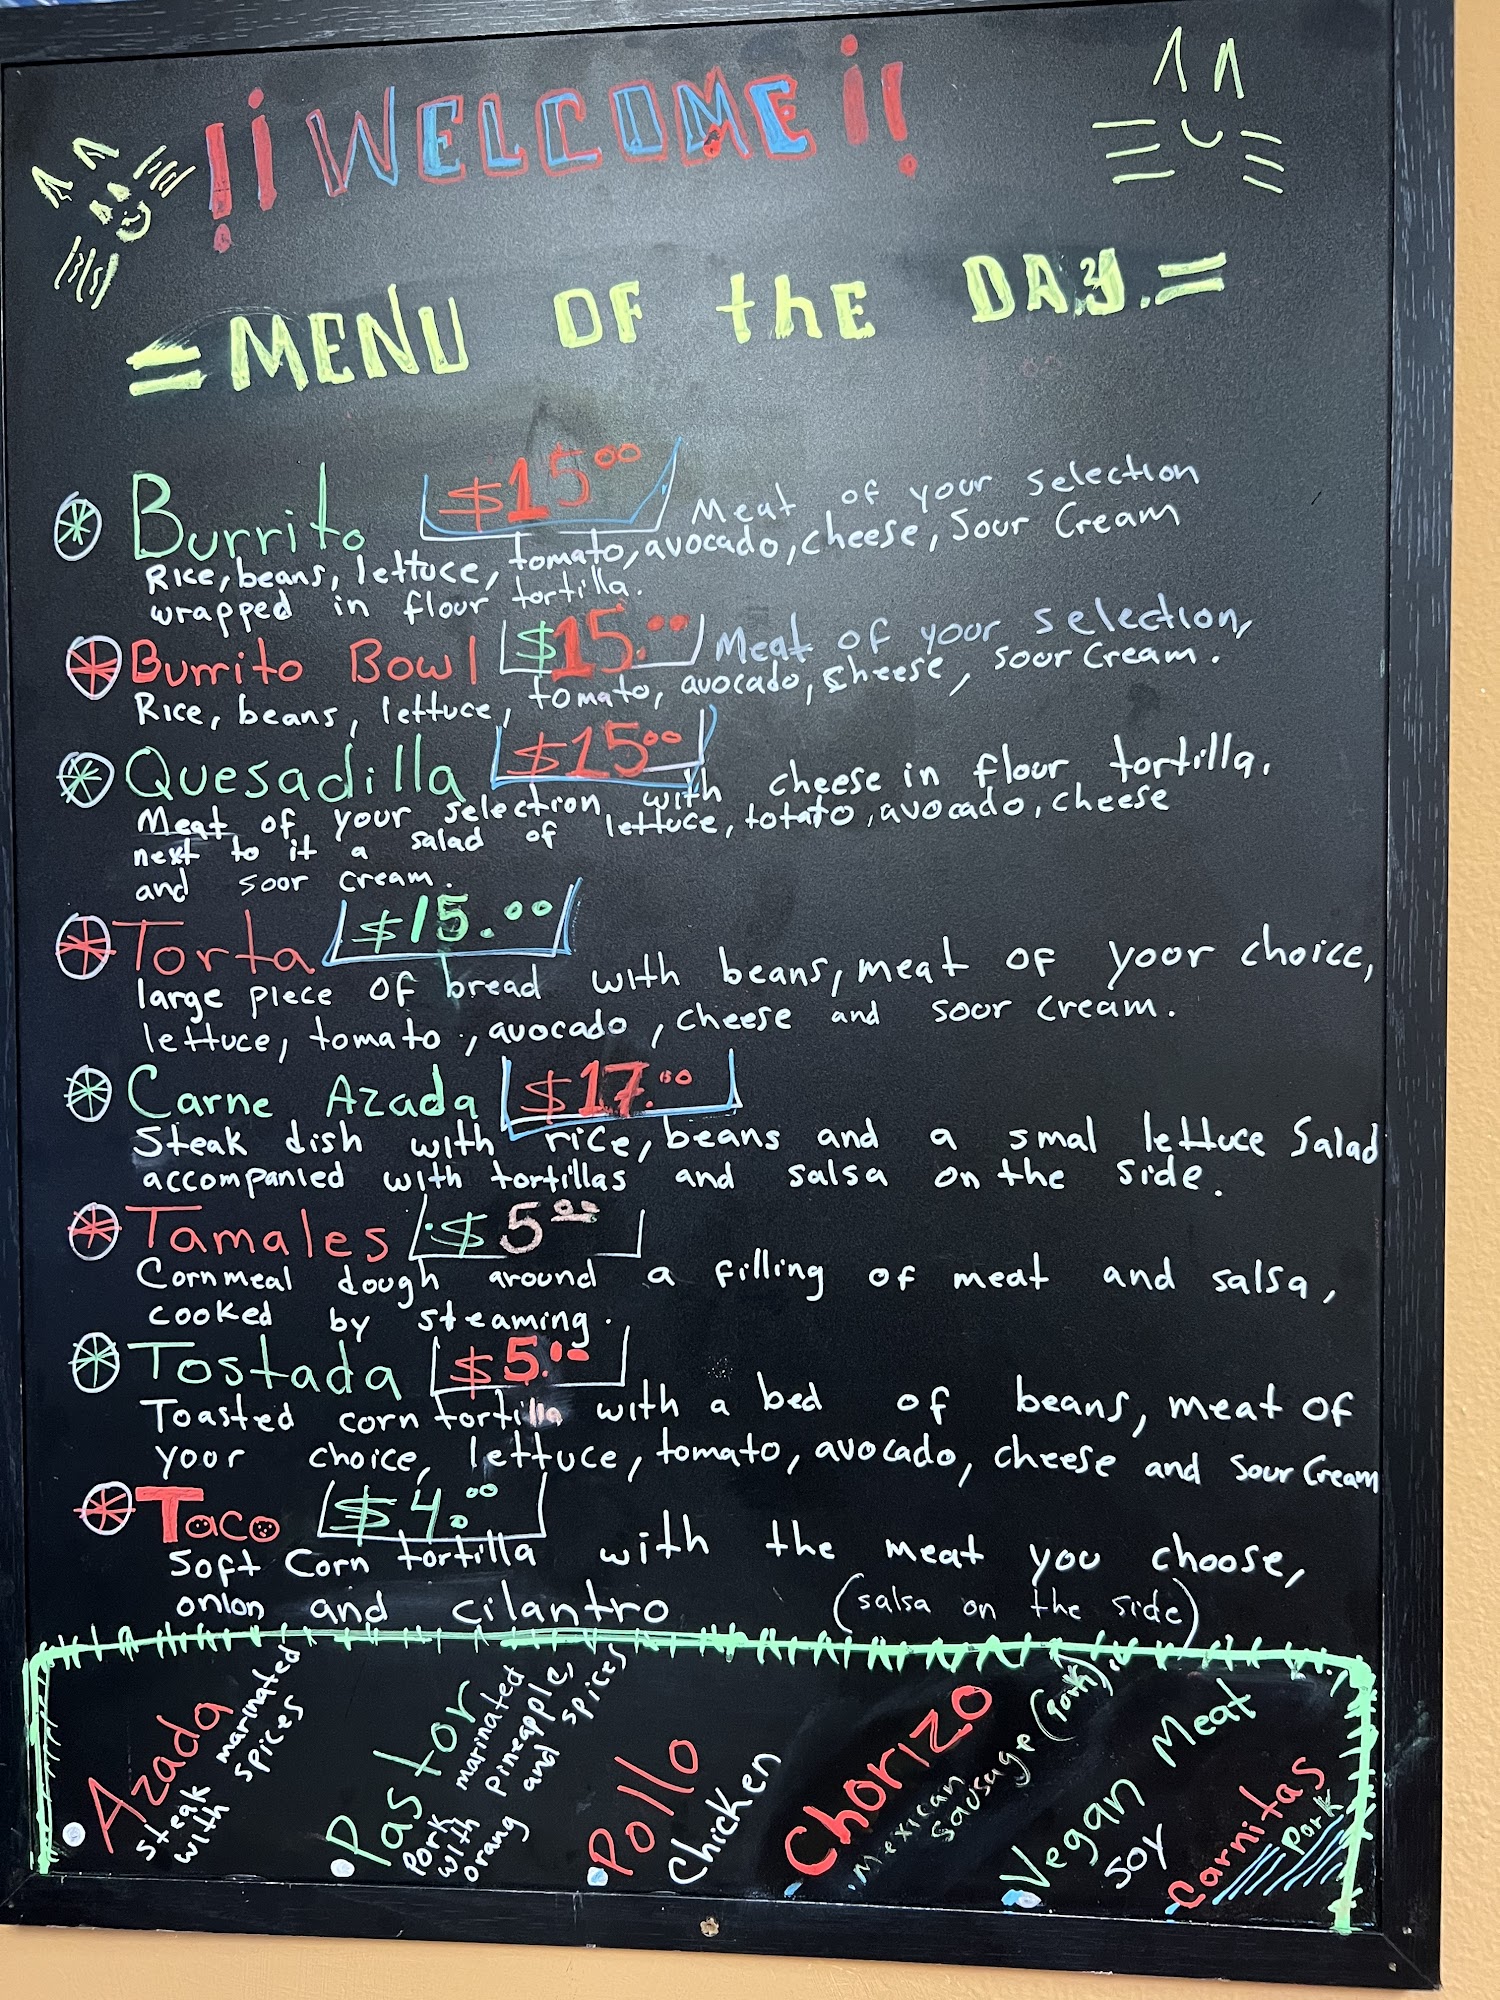 !¡WELCOME¡!
= MENU OF thE DAY. =
Burrito $15.00 Meat of your selection
Rice, beans, lettuce, tomato, avocado, cheese, Sour Cream
wrapped in flour tortilla.
Burrito Bowl $15.00 Meat of your selection,
Rice, beans, lettuce, tomato, avocado, cheese, sour cream.
Quesadilla $15.00
Meat of your selection with cheese in flour tortilla,
next to it a salad of lettuce, totato, avocado, cheese
and soor cream.
Torta $15.00
large piece of bread with beans, meat of yoor choice,
lettuce, tomato, avocado, cheese and soor cream.
Carne Azada $17.00
Steak dish with rice, beans and a smal lettuce Salad
accompanied with tortillas and salsa on the side.
Tamales $5.00
Cornmeal dough around a filling of meat and salsa,
cooked by steaming.
Tostada $5.--
Toasted corn tortilla with a bed of beans, meat of
yoor choice, lettuce, tomato, avocado, cheese and sour Cream
Taco $4.00
Soft Corn tortilla with the meat you choose,
onion and cilantro (salsa on the side)
Azada
steak marinated
with spices
Pastor
Pork marinated
with pineapple,
orang and spices
Pollo
Chicken
Chorizo
Mexican
sausage (pork)
Vegan Meat
SOY
Carnitas
Pork